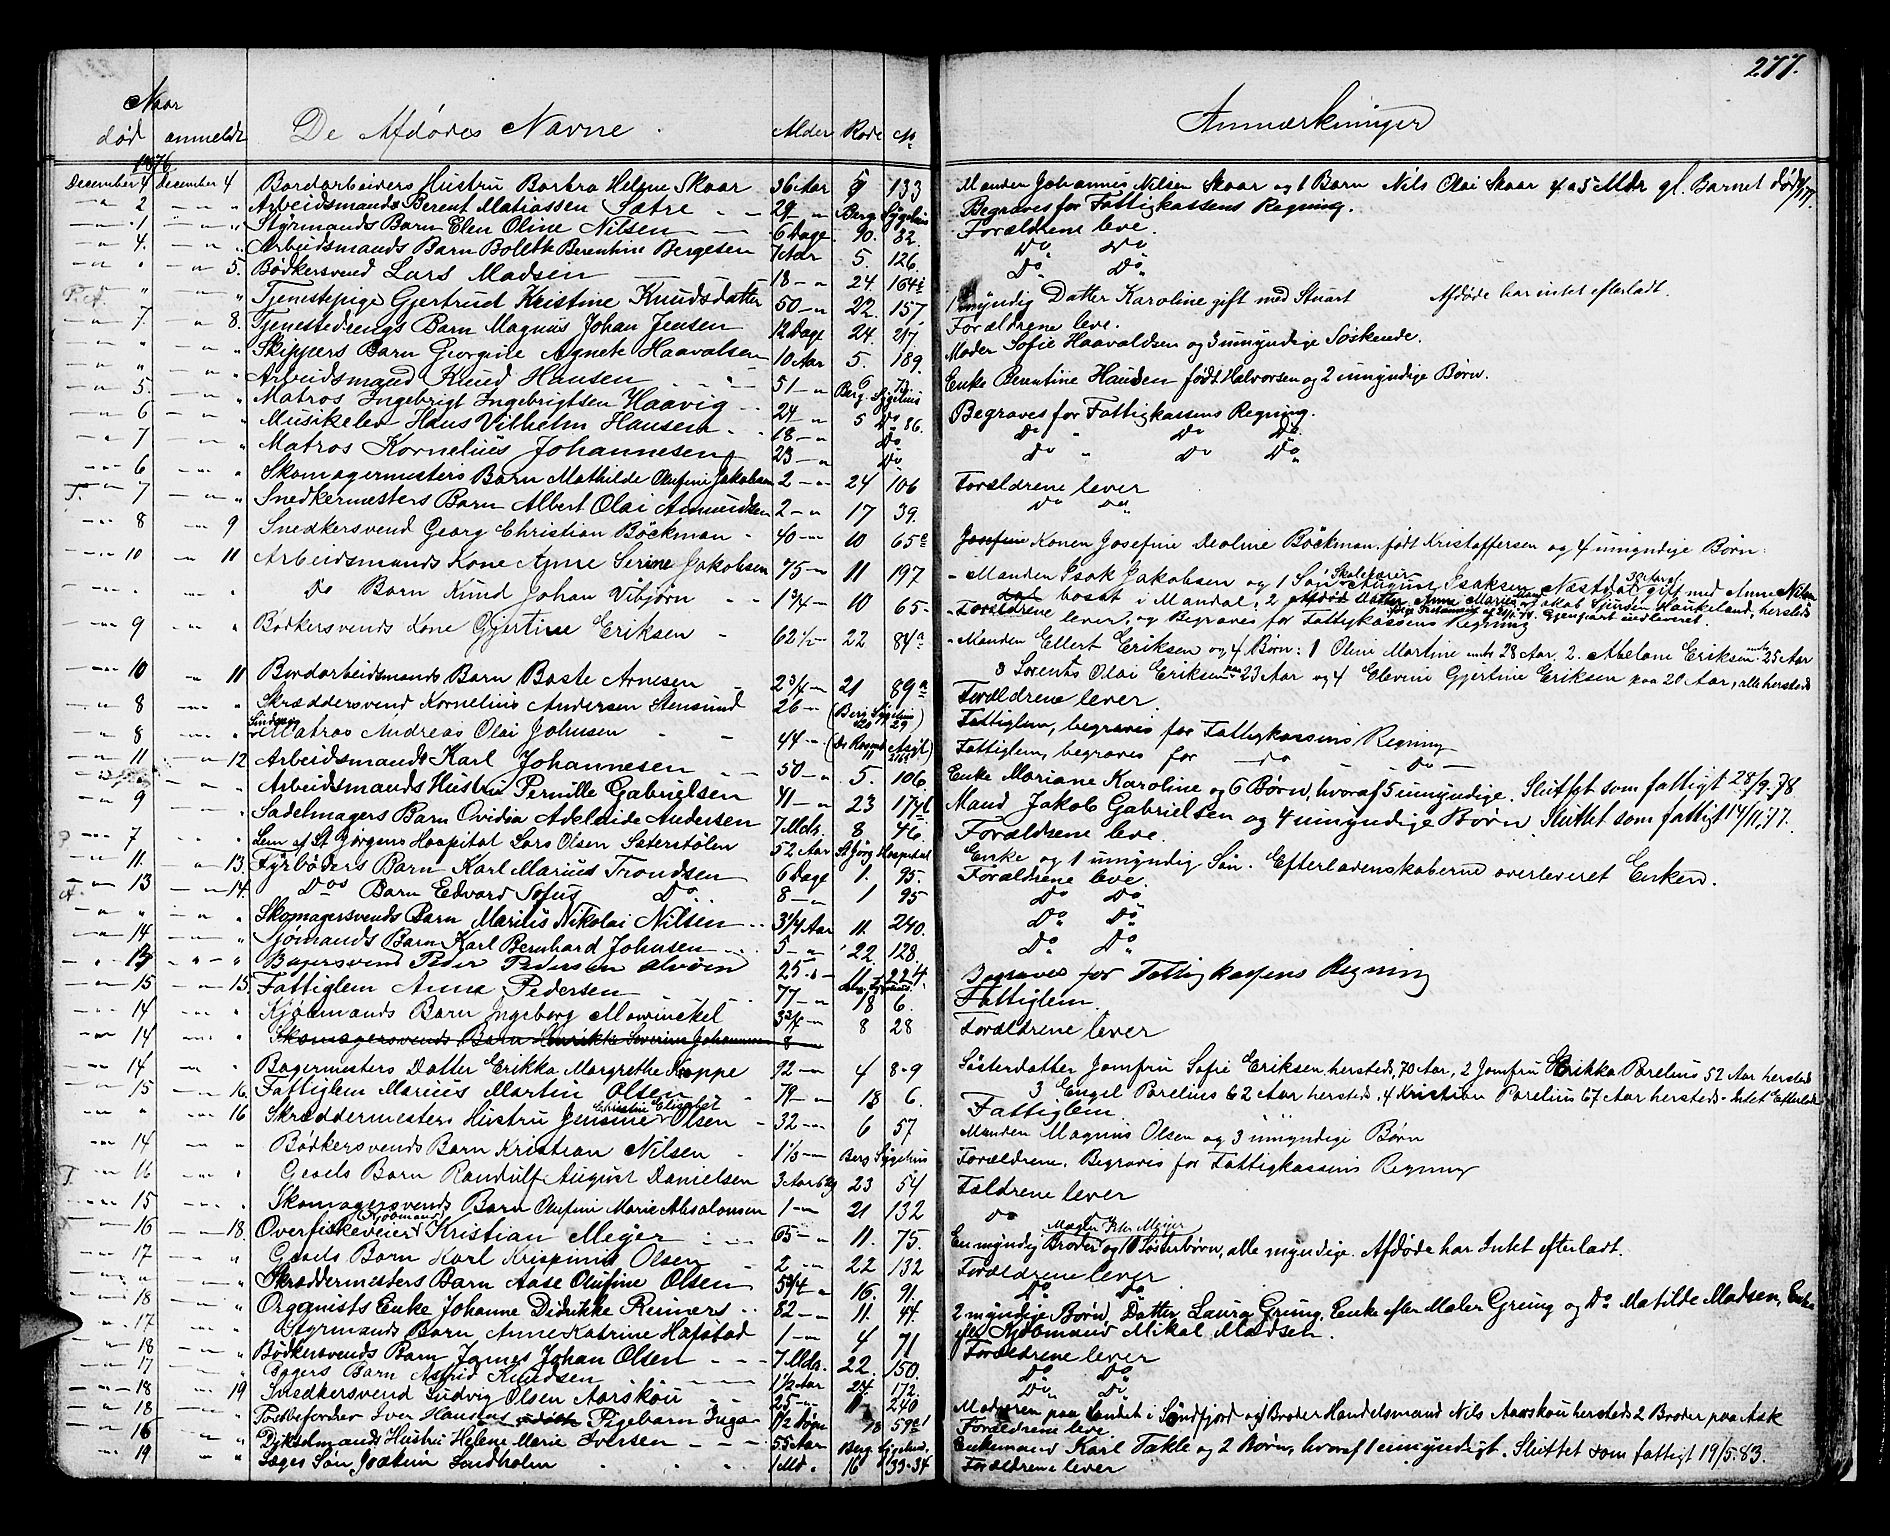 277.
Naar
død anmeldt De Afdødes Navne. Alder Rode No Anmærkninger
1876
December 4 December 4 Bordarbeiders Hustru Barbra Helene Skaar 36 Aar 9 133 Manden Johannes Nilsen Skaar og 1 Barn Nils Olai Skaar 4 a 5 Mdr gl. Barnet død
" 2 " " Arbeidsmand Berent Matiassen Sætre 29 " Berg. Sygehus Begraves for Fattigkassens Regning.
" 1 " " Styrmands Barn Elen Oline Nilsen 6 Dage 90. 32. Forældrene leve.
" 4. " " Arbeidsmands Barn Bolette Berentine Bergesen 7 Aar 5. 126. Do Do
" " " 5. Bødkersvend Lars Madsen 18 " 24. 164 Do Do
" " Tjenestepige Gjertrud Kristine Knudsdatter 50 " 22. 157 1 myndig Datter Karoline gift med Stuart Afdøde har intet efterladt.
" 7. " 8. Tjenestedrengs Barn Magnus Johan Jensen 12 Dage 24. 217. Forældrene leve.
" " " " Skippers Barn Georgine Agnete Haavalsen 10 Aar 5. 189. Moder Sofie Haavaldsen og 3 umyndige Søskende.
" " " " Arbeidsmand Knud Hansen 51 " 6 Enke Berentine Hansen født Halvorsen og 2 umyndige Børn.
" 5. " " Matros Ingebrigt Ingebrigtsen Haavig 24 " Berg. Sygehus Begraves for Fattigkassens Regning.
" 6 " " Musikelev Hans Vilhelm Hansen 18 " 5 Do 86. Do " Do Do
" 7 " " Matros Kornelius Johannesen 23 " Do Do " Do Do
" 6 " " Skomagermesters Barn Mathilde Olufine Jakobsen 2 " 24 106 Forældrene lever
T. " 7 " " Snedkermesters Barn Albert Olai Amundsen 2 " 17 39. Do Do
" 8 " 9 Snedkersvend Georg Christian Böckman 40 " 10 65 a Konen Josefine Deoline Böckman født Kristoffersen og 4 umyndige Børn.
" 10 " 11 Arbeidsmands Kone Anne Serine Jakobsen 75 " 11 197 Manden Isak Jakobsen og 1 Søn Skolelærer August Isaksen Næstdal gift med Anne Nilsen
bosat i Mandal, 2
" " " " Do Barn Knud Johan Vibjørn 1 3/4 " 10 65 Forældrene lever, og Begraves for Fattigkassens Regning
" 9 " " Bødkersvends Kone Gjertine Eriksen 62 1/2 " 22 84 a Manden Ellert Eriksen og 4 Børn: 1 Oline Martine 28 Aar, 2. Abelone Eriksen 25 Aar
3 Sorents Olai Eriksen 23 Aar og 4 Elevine Gjertine Eriksen paa 20 Aar, alle hersteds
" 10 " 11 Bordarbeidsmands Barn Baste Arnesen 2 3/4 " 21 89 a Forældrene lever.
" 8 " " Skræddersvend Kornelius Andersen Stensund 26 " (Berg Sygehus) Fattiglem, begraves for Fattigkassens Regning
" 8 " " Matros Andreas Olai Johnsen 44 " Fattiglem, begraves for do Do
" 11 " 12 Arbeidsmand Karl Johannesen 50 " 5. 106 Enke Mariane Karoline og 6 Børn, hvoraf 5 umyndige. Sluttet som fattigt 28/9.78
" " Arbeidsmands Hustru Pernille Gabrielsen 41 " 23 174 b Mand Jakob Gabrielsen og 4 umyndige Børn. Sluttet som fattigt 14/11.77.
" 9 " " Sadelmagers Barn Ovidia Adelaide Andersen 7 Mdr. 8. 46. Forældrene leve.
" 7 " " Lem af St Jørgens Hospital Lars Olsen Sæterstølen 52 Aar St Jørg Hospital Enke og 1 umyndig Søn. Efterladenskaberne overleveret Enken.
" 11. " 13. Fyrbøders Barn Karl Marius Trondsen 6 Dage 1. 95. Forældrene leve.
" 13 " 14. Do Barn Edvard Sofus Do. 8 " 1 95 Do Do
" " " " Skomagersvends Barn Marius Nikolai Nilsen 3 1/4 Aar 11. 240. Do Do
" 14 " " Sjømands Barn Karl Bernhard Johnsen 5 " 22. 128. Do Do
" 13 " " Bagersvend Peder Pedersen Alvøen 25 " 11 224. Begraves for Fattigkassens Regning
" 15 " 15. Fattiglem Anna Pedersen 77 " 18 6. Fattiglem.
" 14 " Kjøbmands Barn Ingeborg Mowinckel 3 3/4 " 8 28 Forældrene lever
" 14 " " Skomagersvends Barn Henrikka Severine Johannesen 8
" 14 " " Bagermesters Datter Erikka Margrethe Koppe 92 " 4 8-9 Søsterdatter Jomfru Sofie Eriksen hersteds, 70 Aar, 2 Jomfru Henrikka Porelius 52 Aar hersteds
3 Engel Porelius 62 Aar hersteds, 4 Kristian Porelius 67 Aar hersteds - Intet Efterladt
" 15 " 16. Fattiglem Marius Martin Olsen 79 " 18 6. Fattiglem
" " " 16 Skræddermesters Hustru Jensine Christine Elisabet Olsen 32 " 6 57 Manden Magnus Olsen og 3 umyndige Børn
" 14 " " Bødkersvends Barn Kristian Nilsen 1 1/2 " Berg Sygehus Forældrene. Begraves for Fattigkassens Regning
T. " 16 " " Gesels Barn Randulf August Danielsen 3 Aar 23 54 Fældrene lever
" 15 " " Skomagersvends Barn Olufine Marie Absalonsen 1 " 21 132 do
" 16 " 18. Overfiskeveier Kjøbmand Kristian Meyer 65 " 11. 75. En myndig Broder Mægler Peter Meyer og 10 Søsterbørn, alle myndige. Afdøde har Intet efterladt.
" 17 " " Gesels Barn Karl Krispinus Olsen 2 " 22 132 Forældrene lever
" " " " Skræddermesters Barn Aase Olufine Olsen 5 3/4 " 16. 91. Do Do
" 18 " " Organists Enke Johanne Didrikke Reimers 82 " 11. 44. 2 myndige Børn, Datter Laura Grung, Enke efter Maler Grung og Do Matilde Madsen, Enke
efter Kjøbmand Mikal Madsen.
" 17 " " Styrmands Barn Anne Katrine Hafstad 1 " 4 71 Forældrene lever
" 18 " " Bødkersvends Barn James Johan Olsen 7 Mdr. 22. 150. Do Do
" 17 " " Bagers Barn Astrid Knudsen 1 1/2 Aar 24 172. Do Do
" 18 " 19 Snedkersvend Ludvig Olsen Aarskou 25 " 240 Moderen paa Landet i Søndfjord og 1 Broder Handelsmand Nils Aarskou hersteds 2 Brødre paa Ask
" 18 " " Postbefordrer Iver Hansens Pigebarn Inga 1 1/2 Døgn 18 59 Forældrene leve.
" 16 " " Hustru Helene Marie Iversen 55 Aar Berg. Sygehus. Enkemand Karl Takle og 2 Børn, hvoraf 1 umyndigt. Sluttet som fattigt 19/5.83.
" 19 " " Læges Søn Joakim Lindholm 1 Md. 16 33-34 Forældrene lever